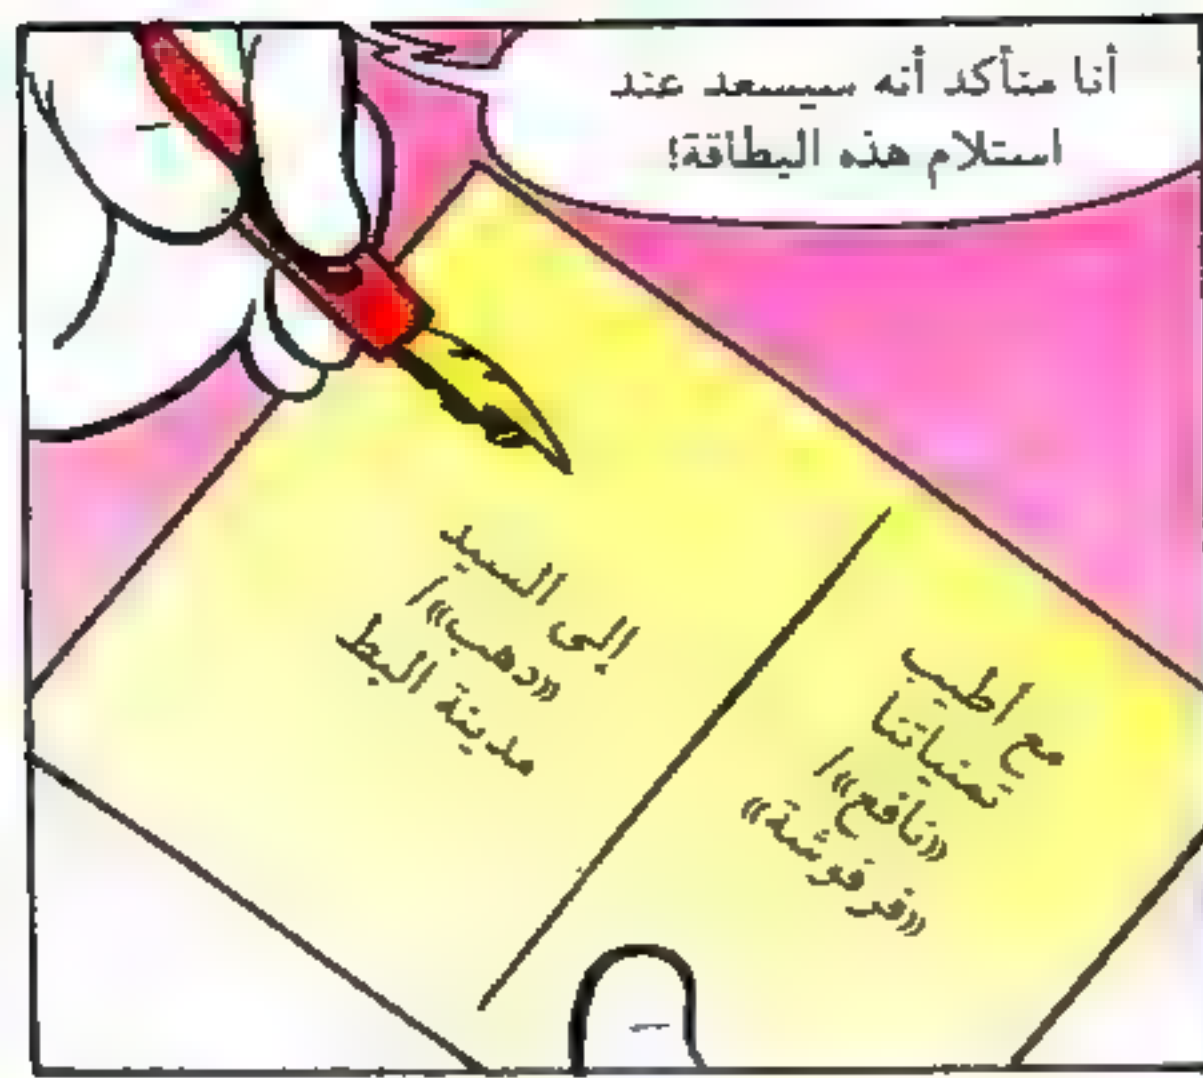 أنا متأكد أنه سيسعد عند
استلام هذه البطاقة!
مع أطيب
تمنياتنا
«نافع»/
«فرفوشة»
إلى السيد
«دهب»/
مدينة البط